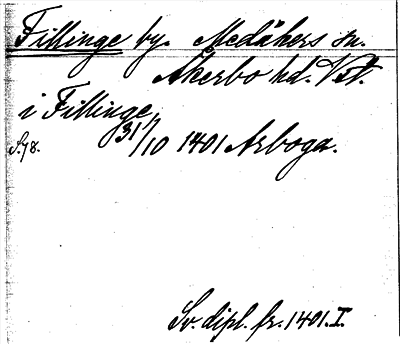 Fillinge by. Medåkers sn.
Åkerbo hd. Vstm.
i Fillinge
S. 78. 31/10 1401 Arboga.
Sv. dipl. fr. 1401. I.